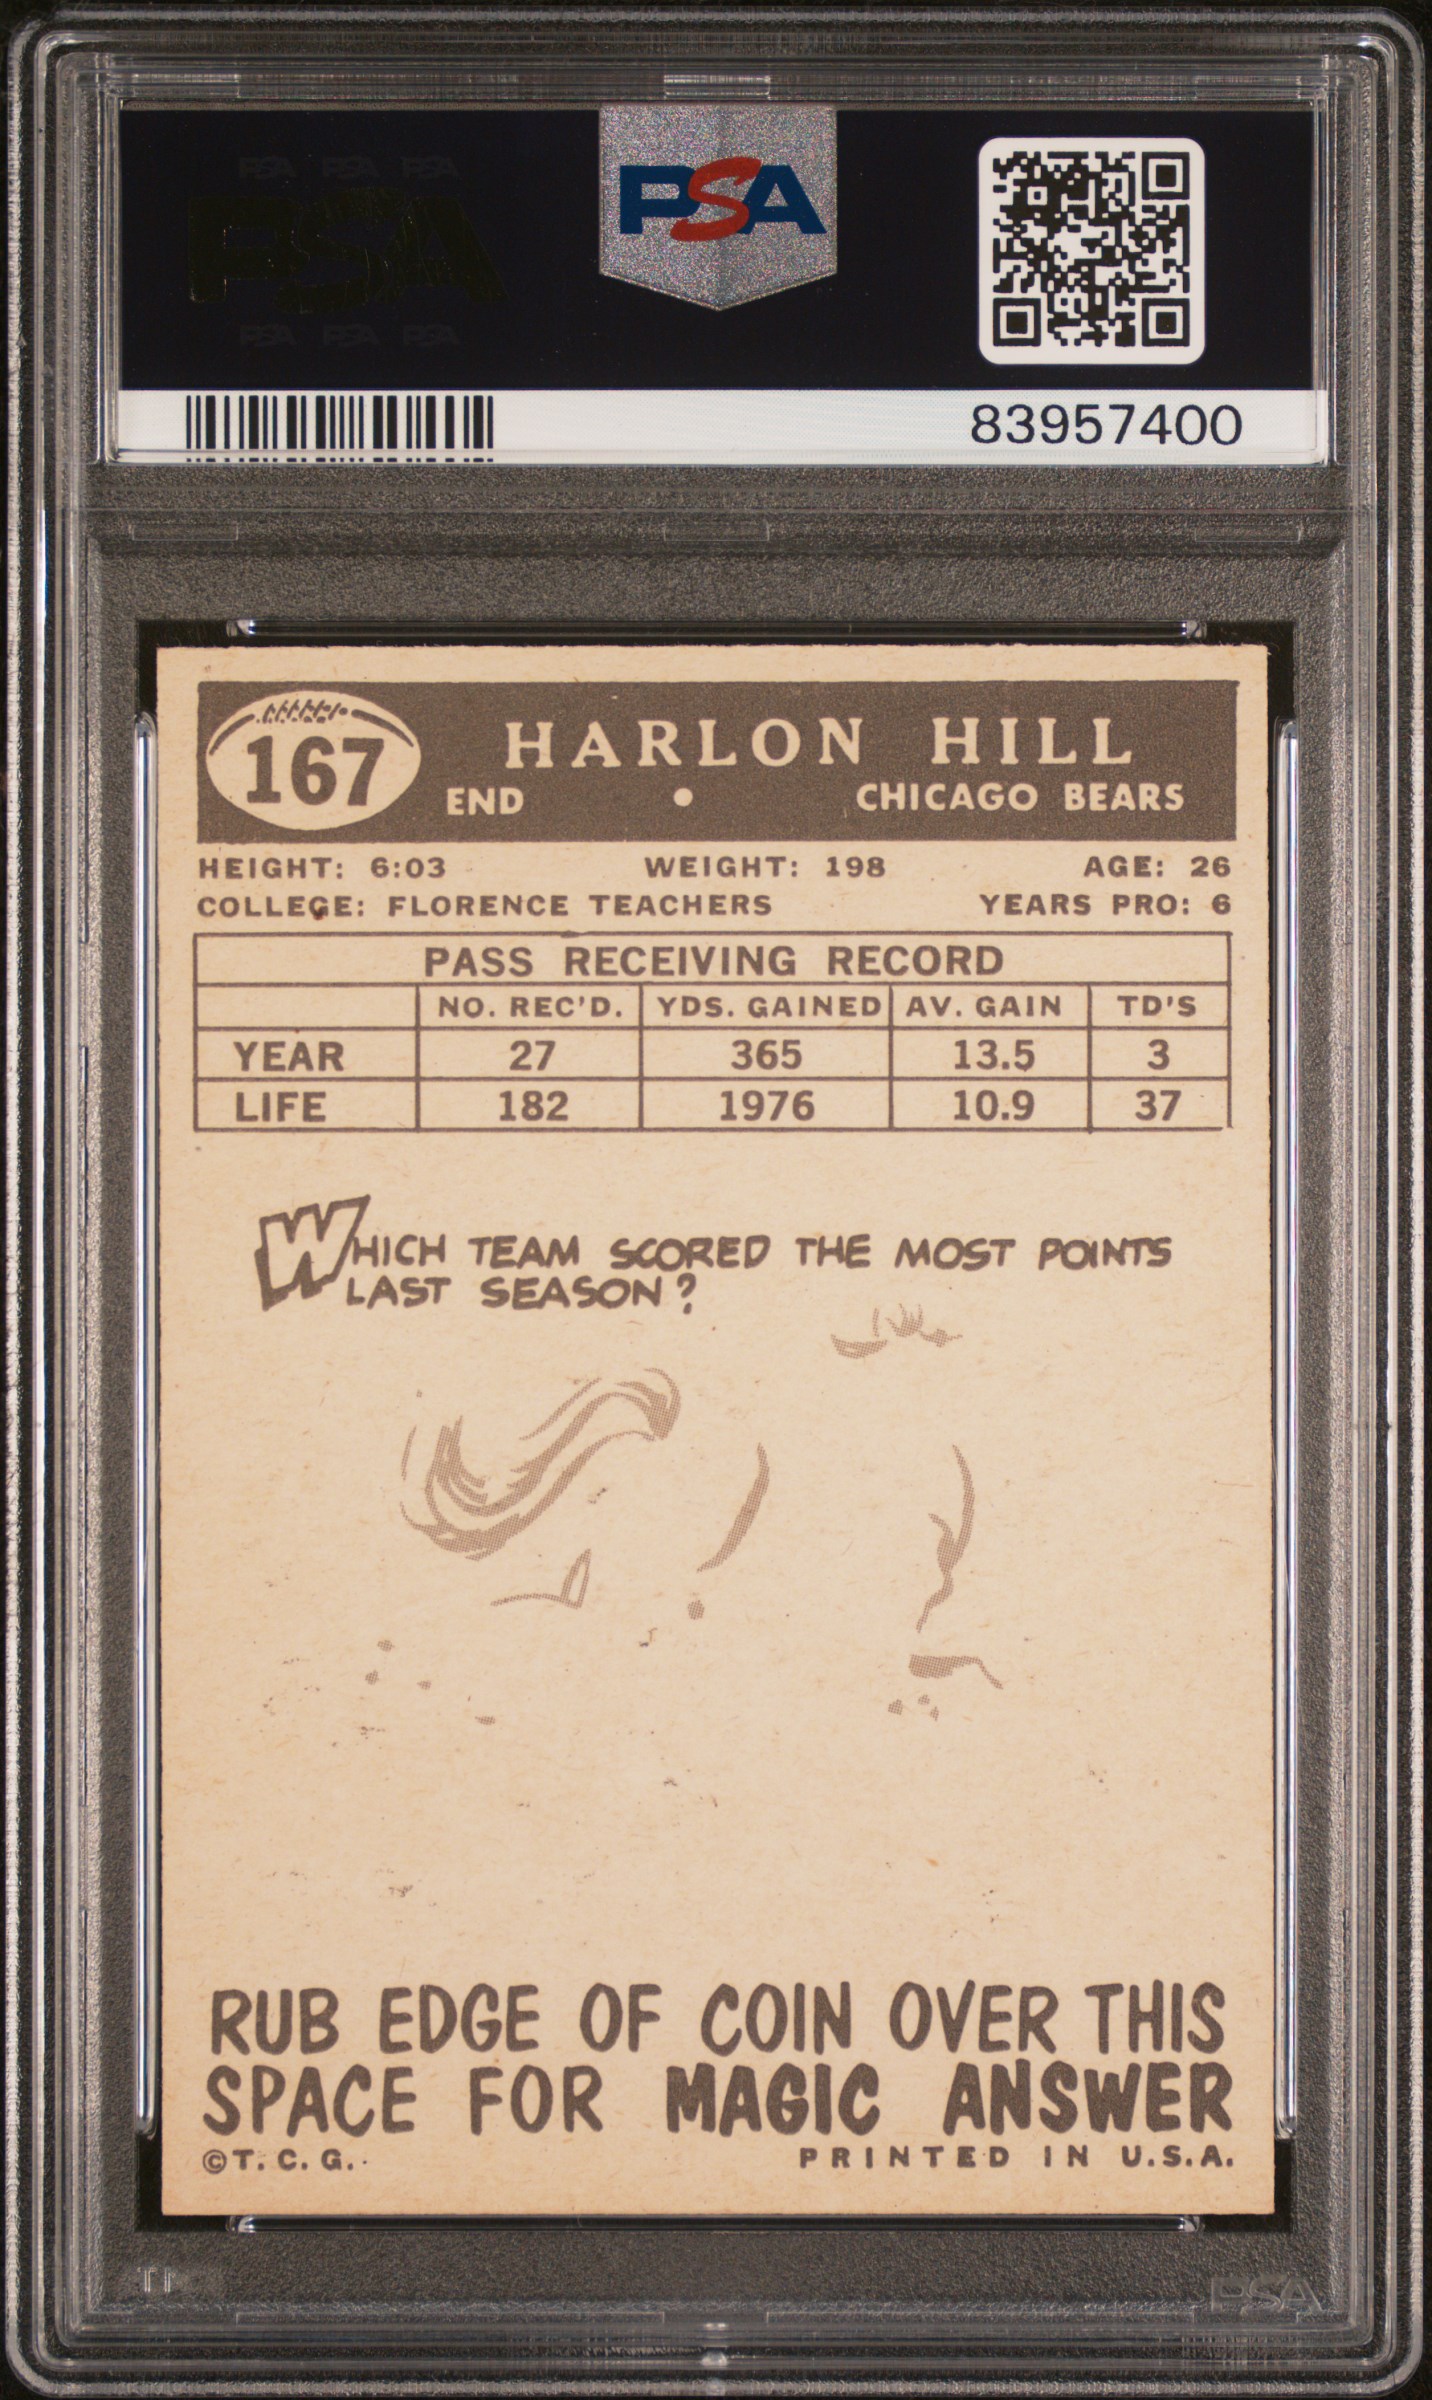 PSA PSA PSA
PSA
PSA PSA PSA
PSA
83957400
167
HARLON HILL
END • CHICAGO BEARS
HEIGHT: 6:03 WEIGHT: 198 AGE: 26
COLLEGE: FLORENCE TEACHERS YEARS PRO: 6
PASS RECEIVING RECORD
NO. REC'D. YDS. GAINED AV. GAIN TD'S
YEAR 27 365 13.5 3
LIFE 182 1976 10.9 37
WHICH TEAM SCORED THE MOST POINTS
LAST SEASON?
RUB EDGE OF COIN OVER THIS
SPACE FOR MAGIC ANSWER
©T. C. G. PRINTED IN U.S.A.
PSA